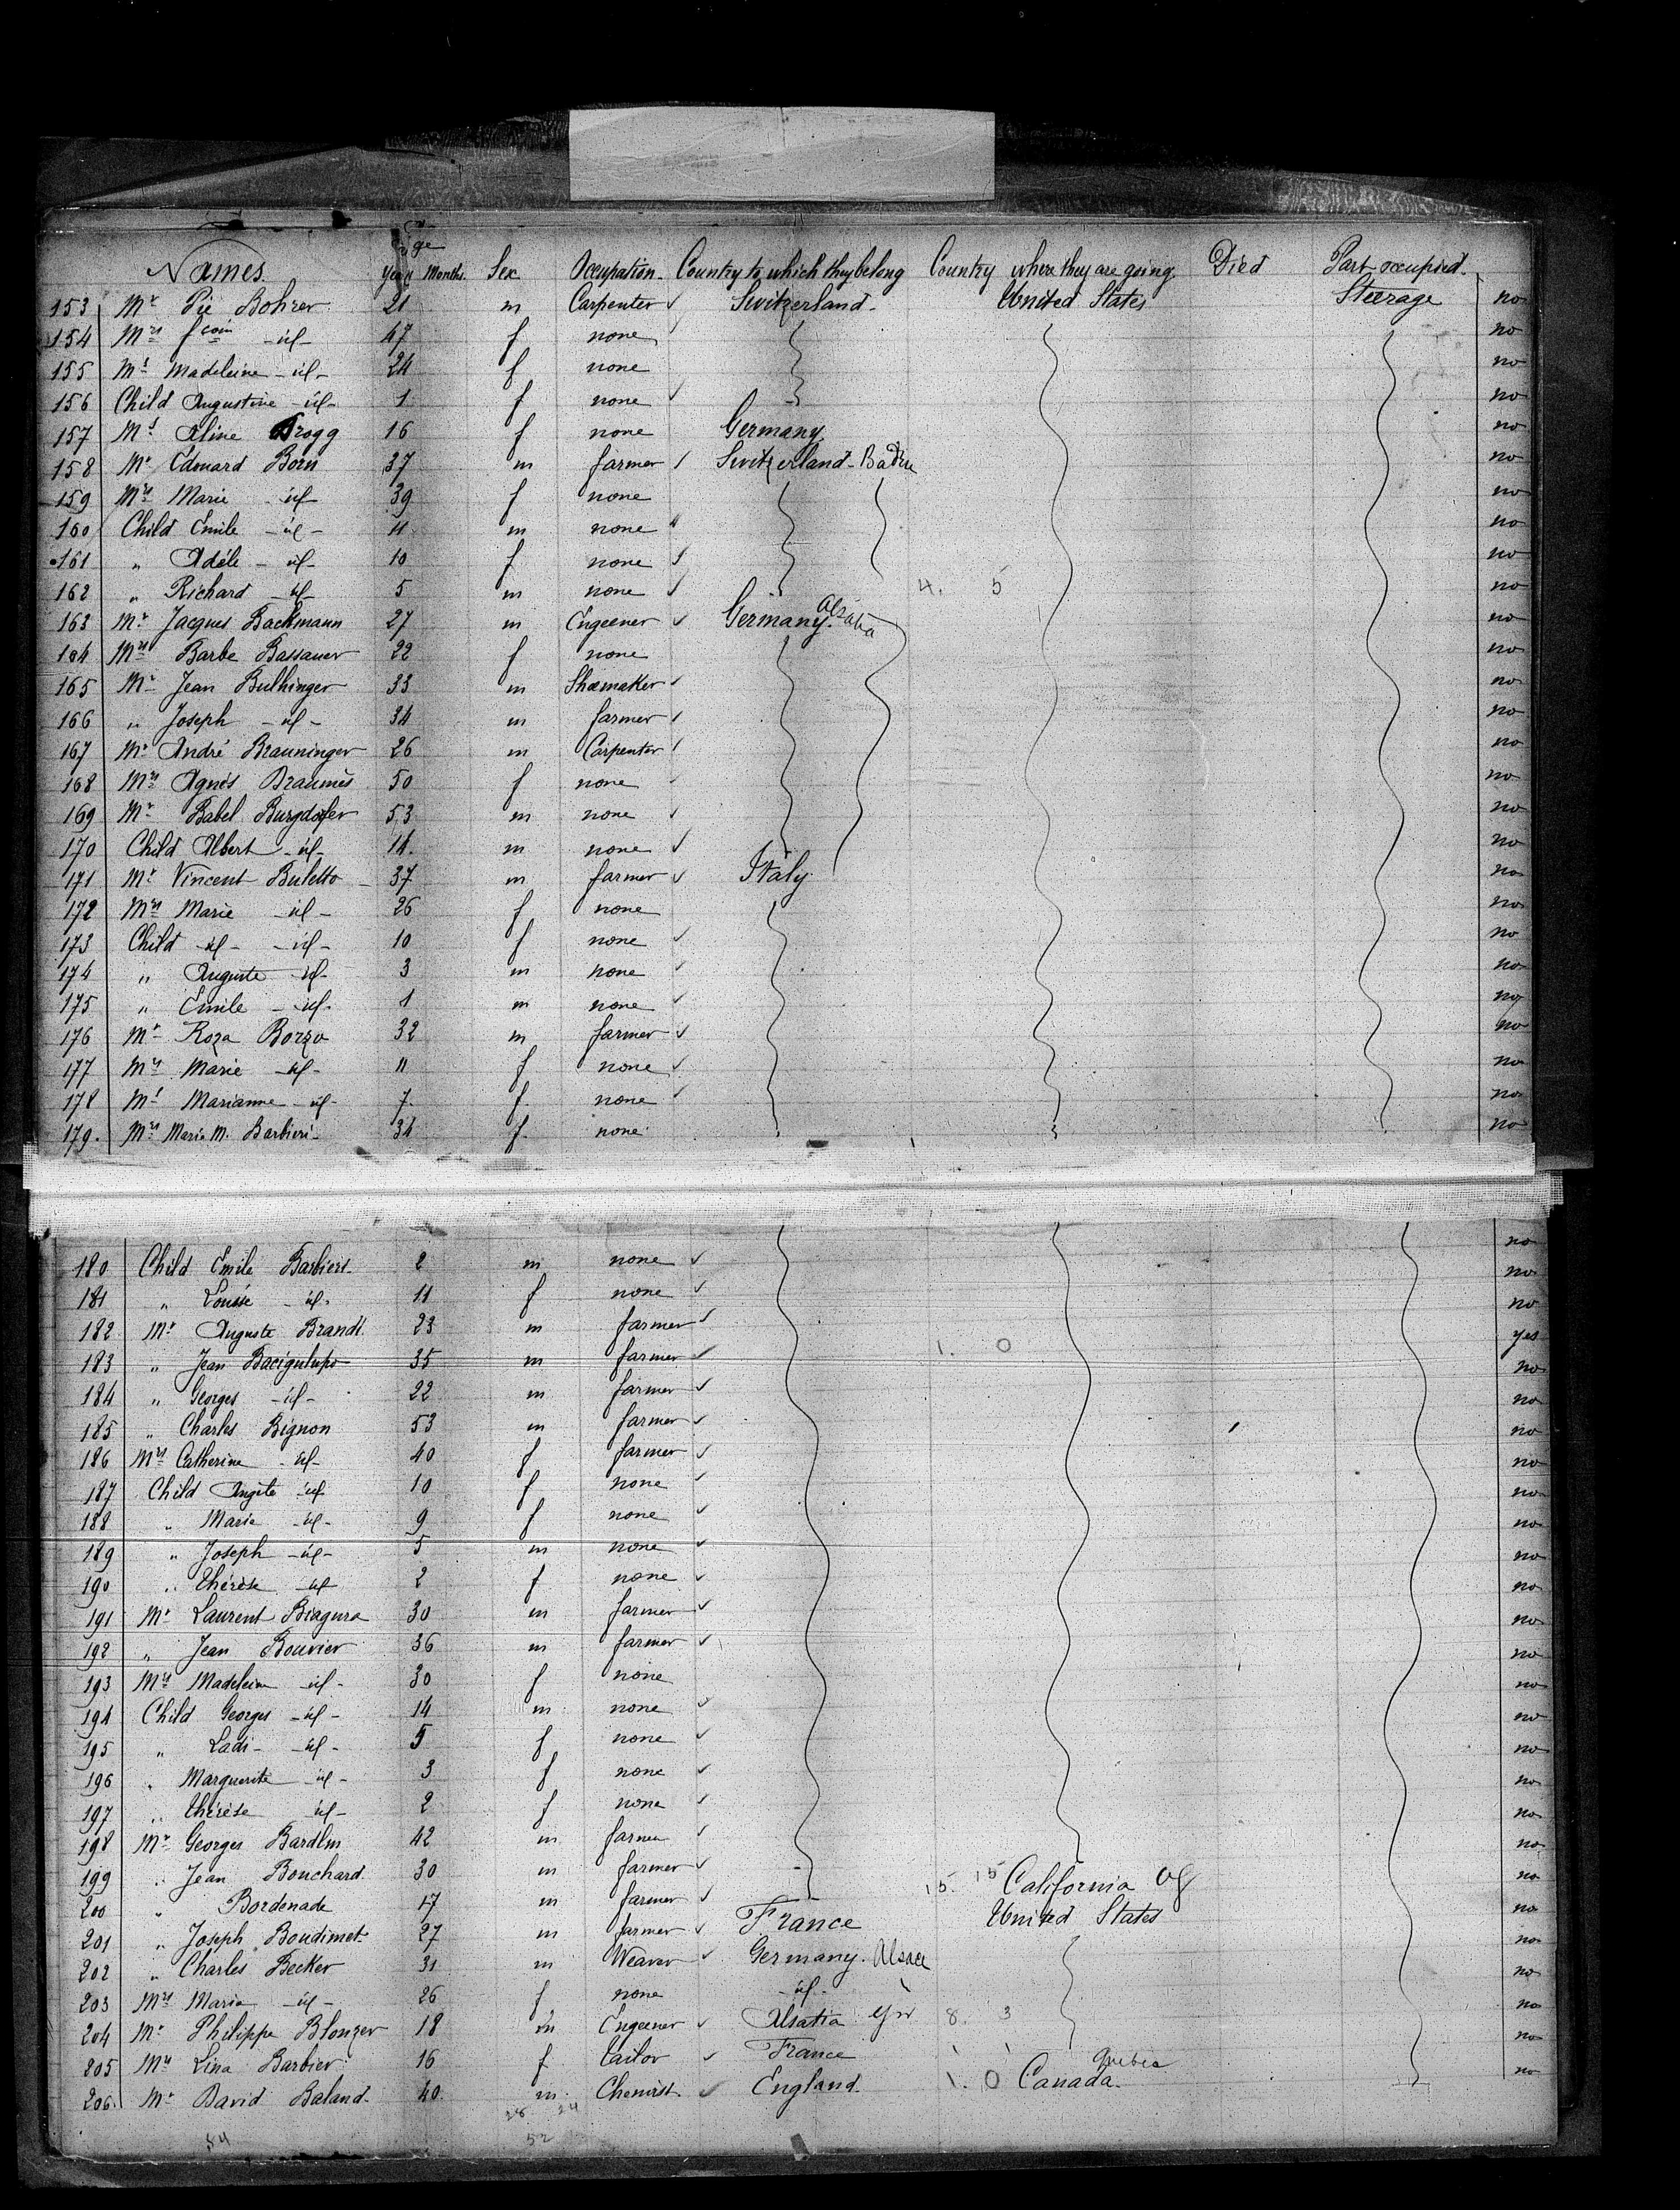 Names. Age Year Months. Sex Occupation. Country to which they belong Country where they are going. Died Part occupied.
153 Mr Pie Bohrer 21 m Carpenter Switzerland. United States Steerage no
154 Mrs fcoin -id- 47 f none no
155 Ms Madeleine -id- 24 f none no
156 Child Augustine -id- 1 f none no
157 Ms Aline Brogg 16 f none Germany no
158 Mr Edouard Born 37 m farmer Switzerland - Baden no
159 Mrs Marie -id- 39 f none no
160 Child Emile -id- 11 m none no
161 " Adéle -id- 10 f none no
162 " Richard -id- 5 m none 4. 5 no
163 Mr Jacques Backmann 27 m Engeener Germany. Alsatia no
164 Mrs Barbe Bassauer 22 f none no
165 Mr Jean Bulhinger 33 m Shoemaker no
166 " Joseph -id- 34 m farmer no
167 Mr André Brauninger 26 m Carpenter no
168 Mrs Agnés Braumés 50 f none no
169 Mr Babel Burgdorfer 53 m none no
170 Child Albert -id- 14. m none no
171 Mr Vincent Buletto 37 m farmer Italy no
172 Mrs Marie -id- 26 f none no
173 Child -id- -id- 10 f none no
174 " Auguste -id- 3 m none no
175 " Emile -id- 1 m none no
176 Mr Roza Borzo 32 m farmer no
177 Mrs Marie -id- 11 f none no
178 Ms Marianne -id- 7. f none no
179. Mrs Marie M. Barbieri 34 f. none no
180 Child Emile Barbieri 2 m none no
181 " Louise -id- 11 f none no
182 Mr Auguste Brandt 23 m farmer no
183 " Jean Bacigulupo 35 m farmer 1. 0 yes
184 " Georges -id- 22 m farmer no
185 " Charles Bignon 53 m farmer no
186 Mrs Catherine -id- 40 f farmer no
187 Child Angite -id- 10 f none no
188 " Marie -id- 9 f none no
189 " Joseph -id- 5 m none no
190 " thérèse -id 2 f none no
191 Mr Laurent Biagura 30 m farmer no
192 " Jean Bouvier 36 m farmer no
193 Mrs Madeleine -id- 30 f none no
194 Child Georges -id- 14 m none no
195 " Ladi- -id- 5 f none no
196 " Marguerite -id- 3 f none no
197 " thérèse id- 2 f none no
198 Mr Georges Bardlin 42 m farmer no
199 " Jean Bouchard 30 m farmer 15. 15 California no
200 " Bordenade 17 m farmer France United States no
201 " Joseph Boudimet 27 m farmer no
202 " Charles Becker 31 m Weaver Germany. Alsace no
203 Mrs Maria -id- 26 f none -id- no
204 Mr Philippe Blonzer 18 m Engeener Alsatia 8. 3 no
205 Ms Lina Barbier 16 f tailor France no
206. Mr David Baland. 40. m. Chemist. England. 1. 0 Canada. Quebec no
28 24
84 52